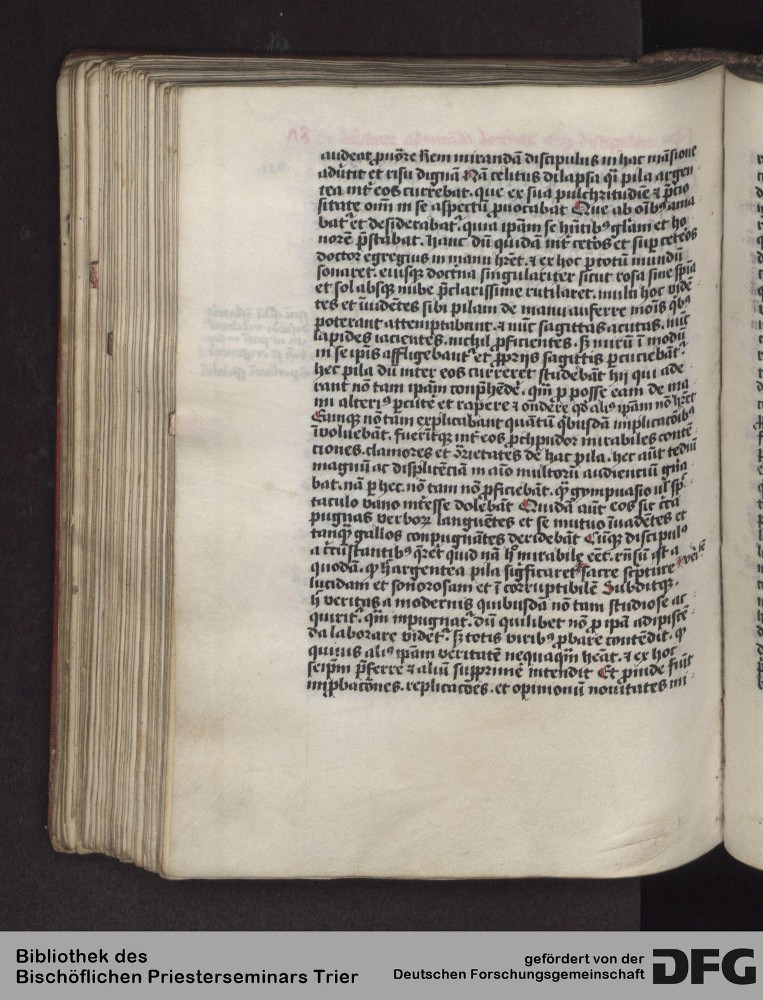 audeat ꝓuoc̄re Rem mirandā discipulus in hac māsione
adūtit et risu dignā Nā celitus dilapsa qi pila argen
tea int̄ eos currebat. que ex sua pulchritudīe ⁊ p̄cio
sitate om̄ in se aspectū ꝓuocabat Que ab oībꝰ ama
bat᷑ et desiderabat᷑. quia ip̄am se hn̄tibꝰ glām et ho
norē p̄stabat. hanc dū quidā int̄ cetos et suꝑ ceteos
doctor egregius in manu hr̄et. ⁊ ex hoc ꝑ totū mundū
sonaret. eiusqꝫ doctna singulariter sicut rosa sine spīa
et sol absqꝫ nube p̄clarissime rutilaret. multi hoc vidē
tes et īuidētes sibi pilam de manu auferre mōis qibꝰ
poterant attemptabant. ⁊ nūc sagittas acutas. nūc
lapides iacientes. nichil ꝓficientes. sꝫ mirū ī modū
in se ip̄is affligebant᷑ et ꝓprijs sagittis ꝑcuciebāt᷑
hec pila dū inter eos curreret studebāt hij qui ade
rant nō tam ip̄am cōnp̄hēdē. qim̄ ꝑ posse eam de ma
nu alteriꝰ ꝑcutē et rapere ⁊ ondēre qd̄ aliꝰ ip̄am nō hr̄et
Eamqꝫ nō tam explicabant quātū qibusdā implicacōibꝰ
īuoluebāt. fuerūtqꝫ int̄ eos ꝓchpudor mirabiles contē
ciones. clamores et ꝯrietates de hac pila. hec aūt tediū
magnū ac displicēciā in aīo multorū audienciū gn̄a
bat. nā ꝑ hec nō tam nō ꝓficiebāt. qꝫ gympnasio ul᷑ sp̄
taculo vano int̄esse dolebāt Quidā aūt eos sic ct̄a
pugnas verboꝝ languētes et se mutuo īuadētes et
tanqꝫ gallos conpugnātes deridebāt Cūqꝫ discipulꝰ
a circūstantibꝰ qr̄et quid nā h᷑ mirabile eēt. rn̄sū ē a
quodā. qꝫ h᷑ argentea pila sigficaret sacre scpture
lucidam et sonorosam et ī corruptibilē Subditqꝫ.
h᷑ veritas a modernis quibusdā nō tam studiose ac
quirit᷑. qim̄ inpugnat᷑. dū quilibet nō ꝓ ip̄a adipiscē
da laborare vidēt᷑. sꝫ totis viribꝰ ꝓbare contēdit. qꝫ
quiuis aliꝰ ip̄am veritatē nequaqim̄ heāt. ⁊ ex hoc
seip̄m p̄ferre ⁊ aliū supprimē intendit Et ꝓinde fiūt
inꝓbacōnes. replicacōes. et opinionū nouitates mi
Bibliothek des
Bischöflichen Priesterseminars Trier
gefördert von der
Deutschen Forschungsgemeinschaft
DFG